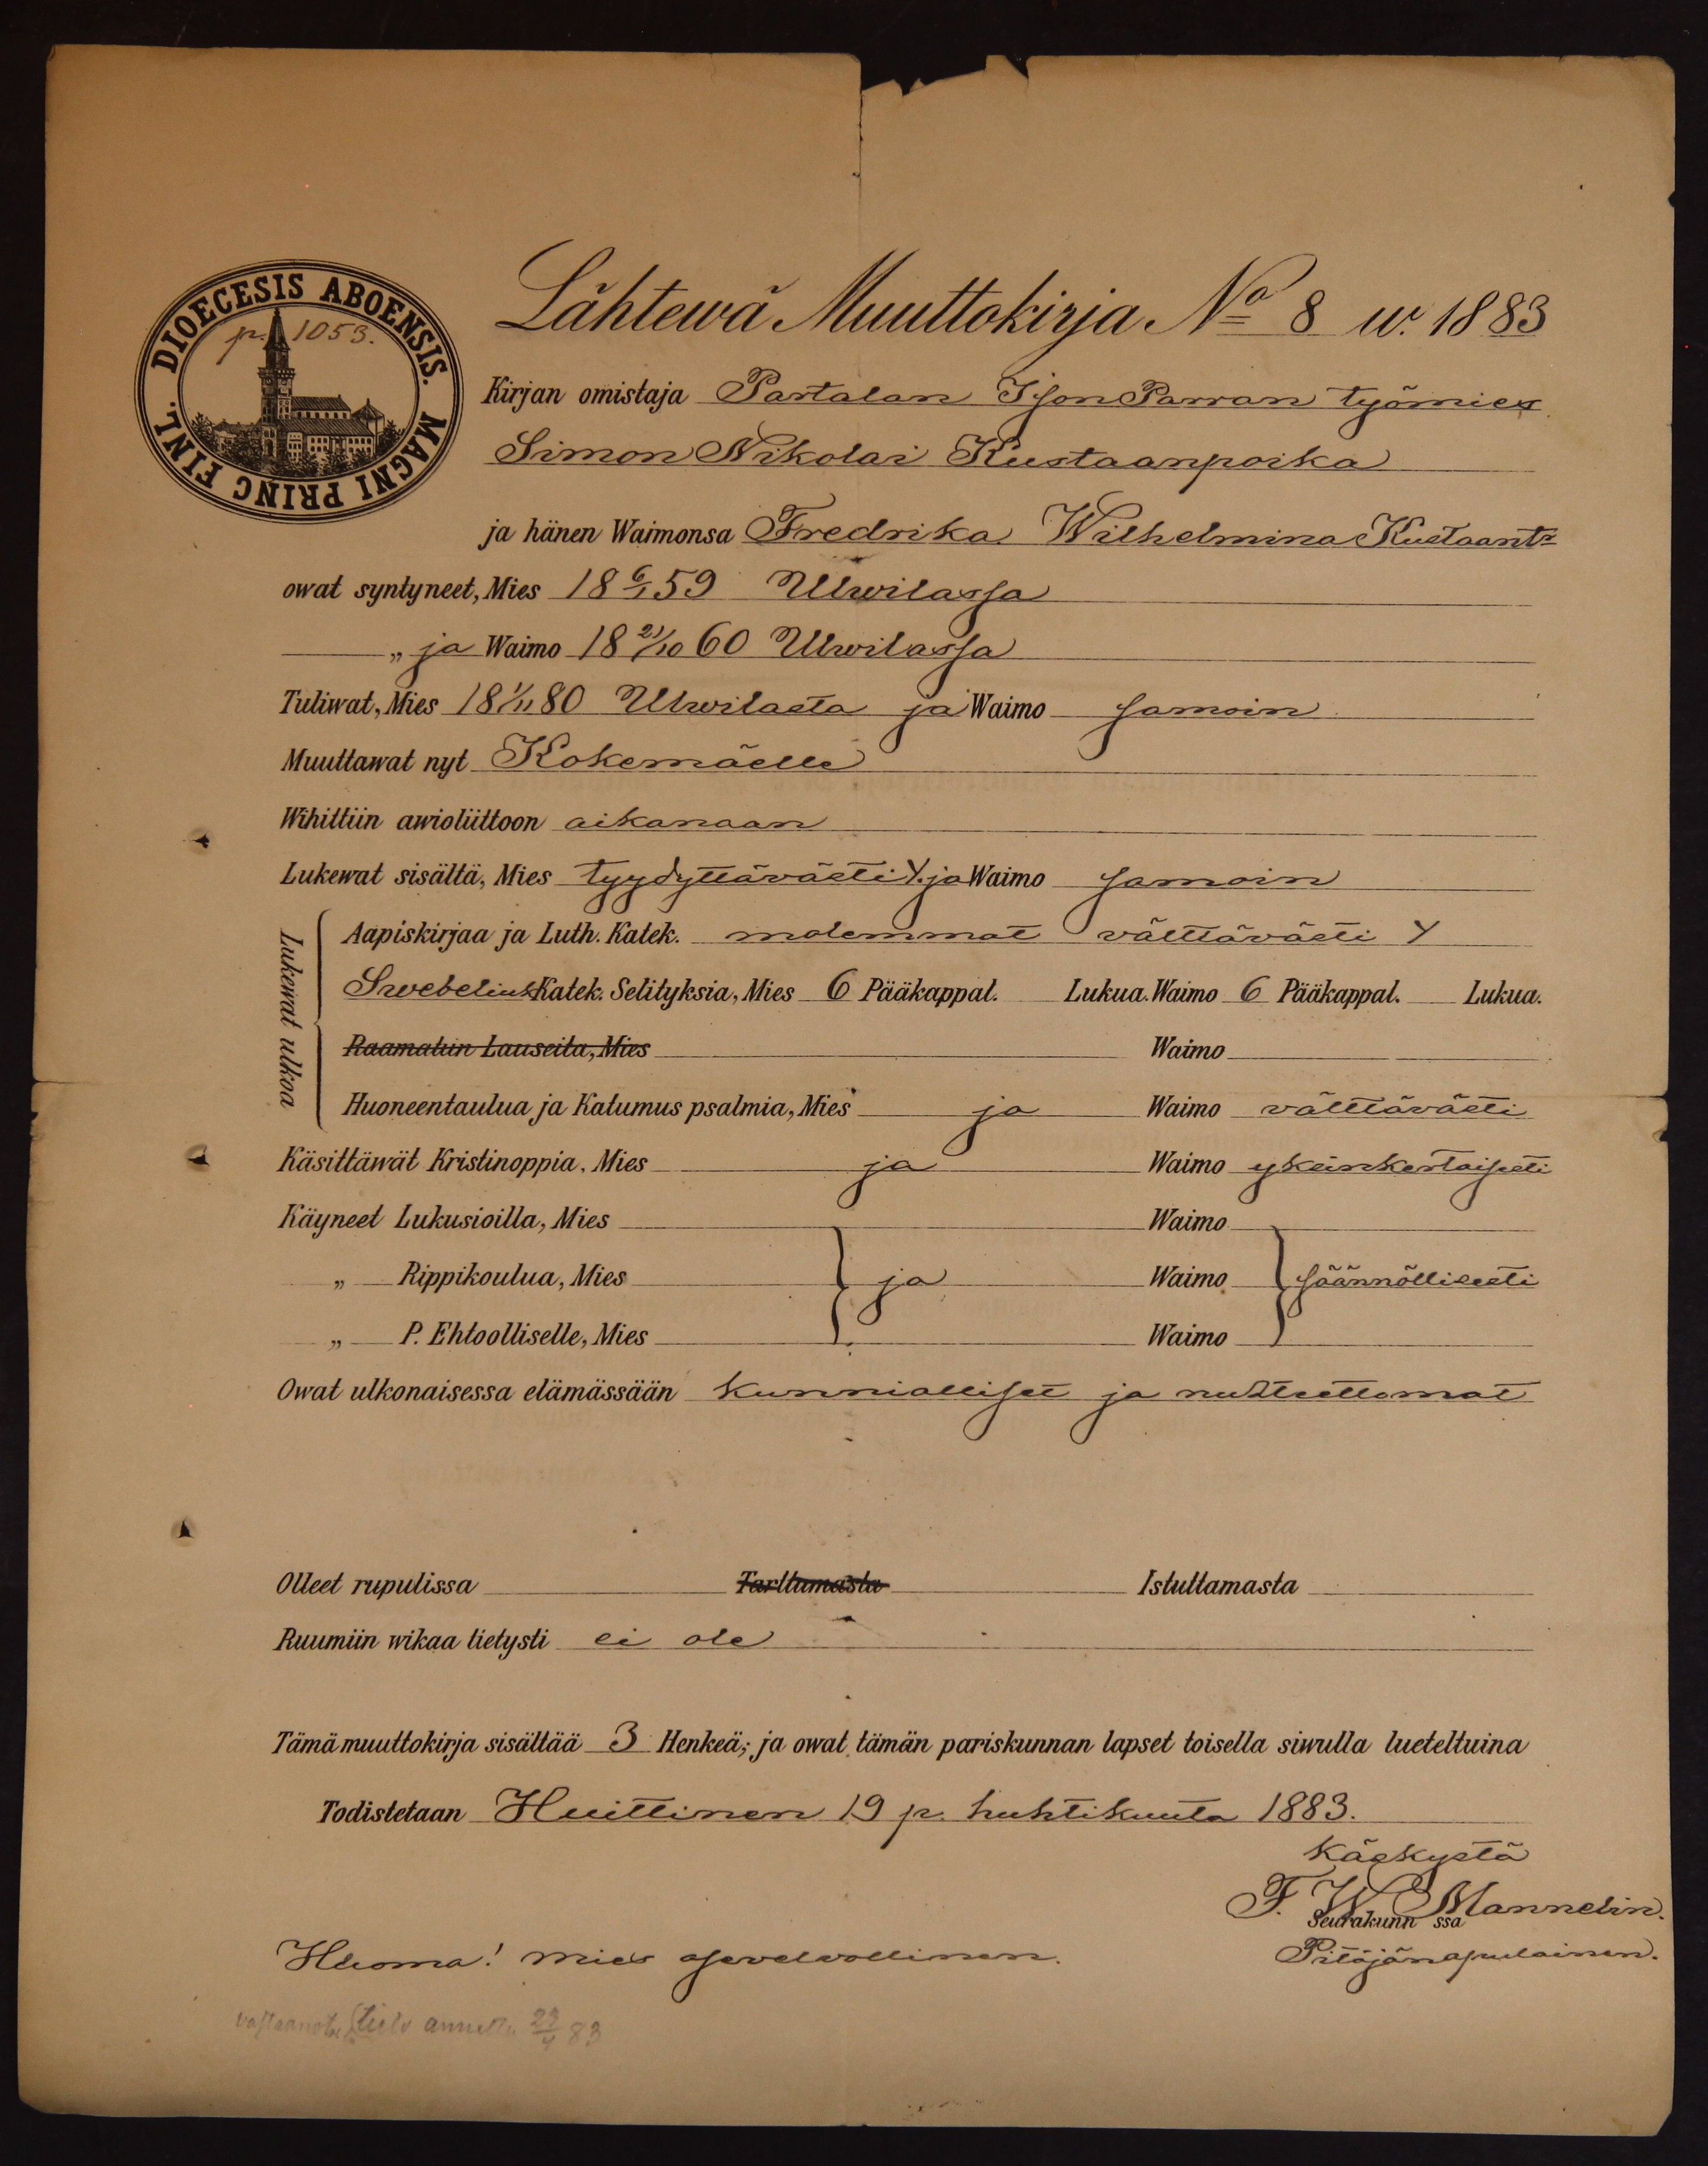 DIOECESIS ABOENSIS. MAGNI PRINC FINL.
p. 1053.
Lähtewä Muuttokirja No 8 w. 1883
Kirjan omistaja Partalan Ison Parran työmies
Simon Nikolai Kustaanpoika
ja hänen Waimonsa Fredrika Wilhelmina Kustaantr
owat syntyneet, Mies 18 6/1 59 Ulwilassa
„ ja Waimo 18 21/10 60 Ulwilassa
Tuliwat, Mies 18 1/11 80 Ulwilasta ja Waimo samoin
Muuttawat nyt Kokemäelle
Wihittiin awioliittoon aikanaan
Lukewat sisältä, Mies tyydyttävästi Y. ja Waimo samoin
Lukewat ulkoa
Aapiskirjaa ja Luth. Katek. molemmat välttävästi Y
Swebelius Katek. Selityksia, Mies 6 Pääkappal. Lukua. Waimo 6 Pääkappal. Lukua.
Raamatun Lauseita, Mies Waimo
Huoneentaulua ja Katumus psalmia, Mies ja Waimo välttävästi
Käsittäwät Kristinoppia, Mies ja Waimo yksinkertaisesti
Käyneet Lukusioilla, Mies Waimo
„ Rippikoulua, Mies ja Waimo säännöllisesti
„ P. Ehtoolliselle, Mies Waimo
Owat ulkonaisessa elämässään kunnialliset ja nuhteettomat
Olleet rupulissa Tarttumasta Istuttamasta
Ruumiin wikaa tietysti ei ole
Tämä muuttokirja sisältää 3 Henkeä; ja owat tämän pariskunnan lapset toisella siwulla lueteltuina
Todistetaan Huittinen 19 p. huhtikuuta 1883.
Käskystä
F. W. Mannelin.
Seurakunn ssa
Pitäjänapulainen.
Huoma! mies asevelvollinen.
vastaanoto tieto annettu 23/4 83